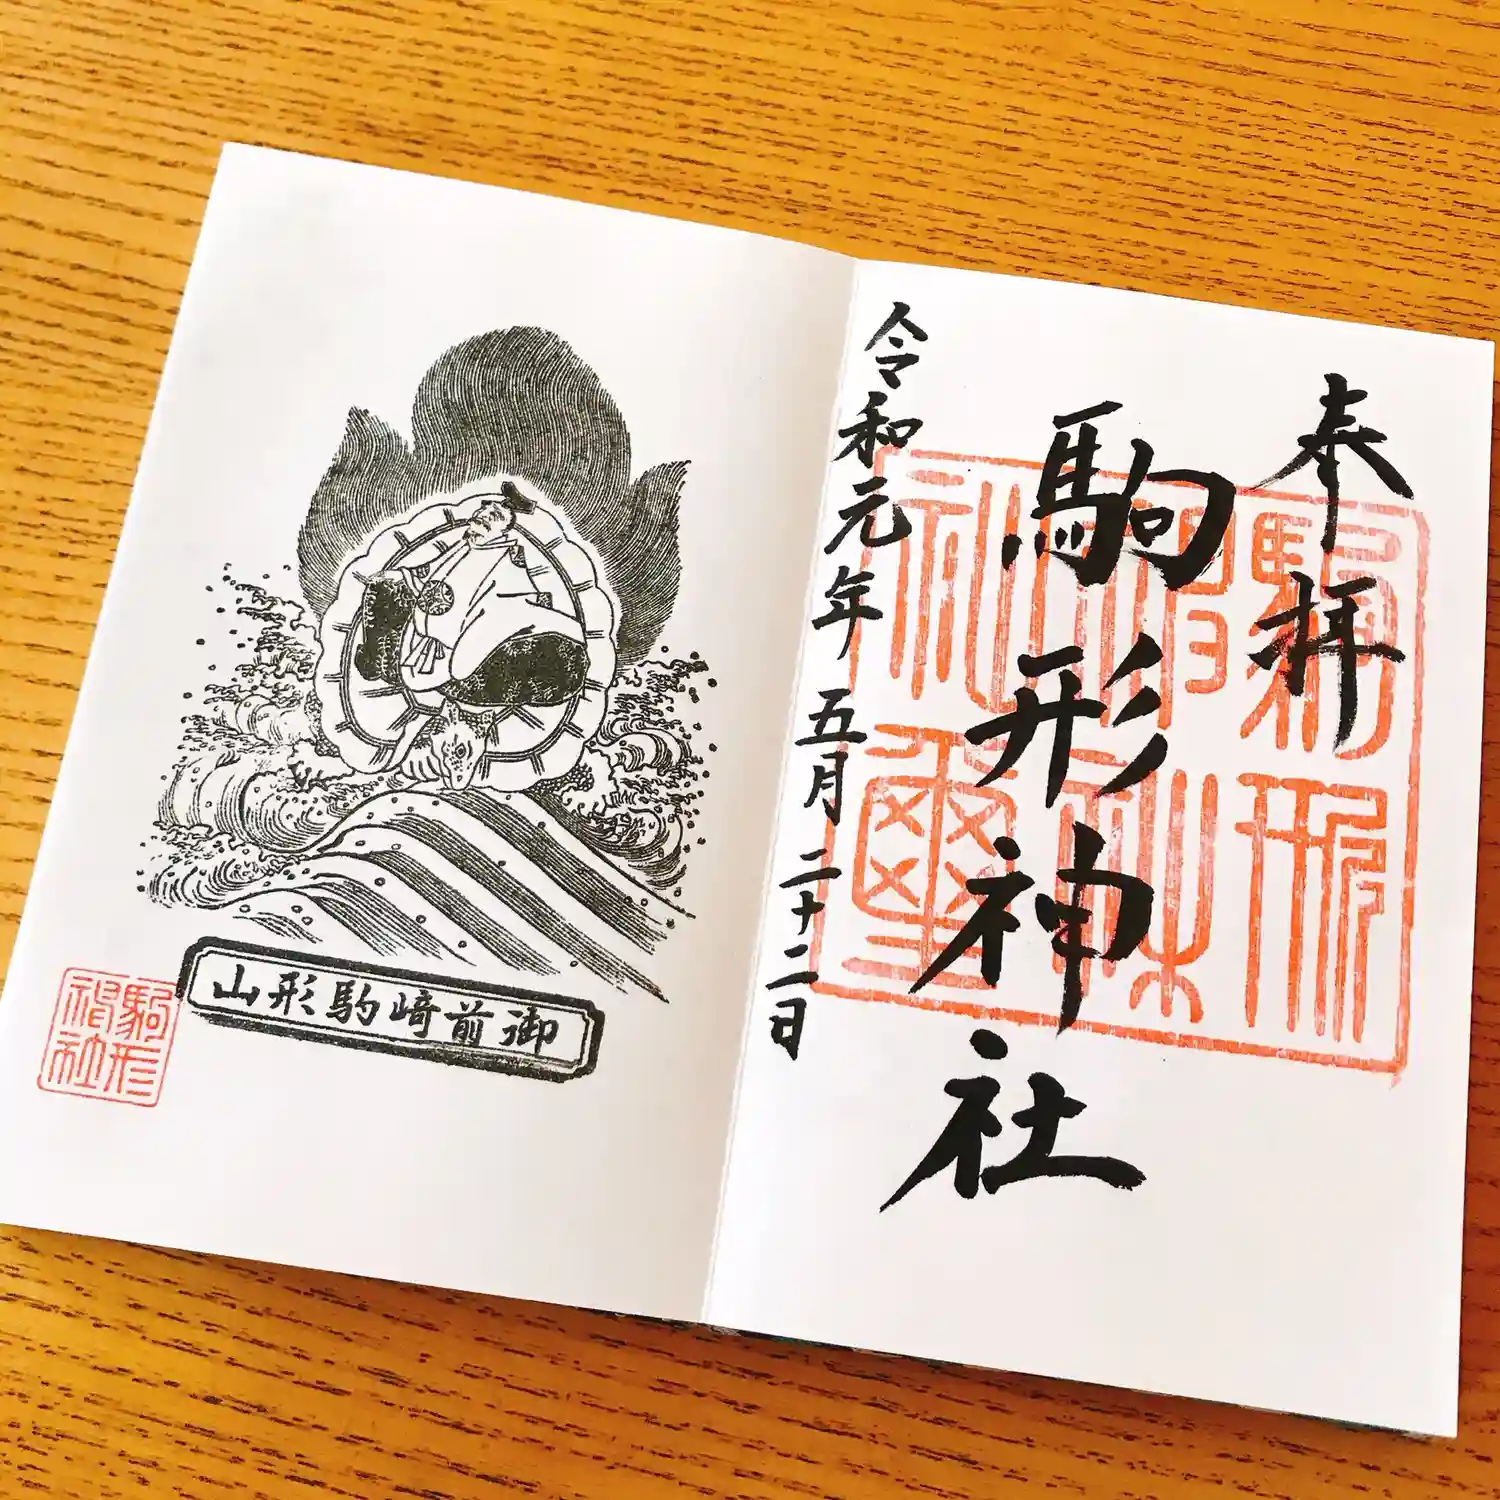 奉拝
駒形神社
令和元年 五月 二十二日
御前﨑駒形山
駒形
神社